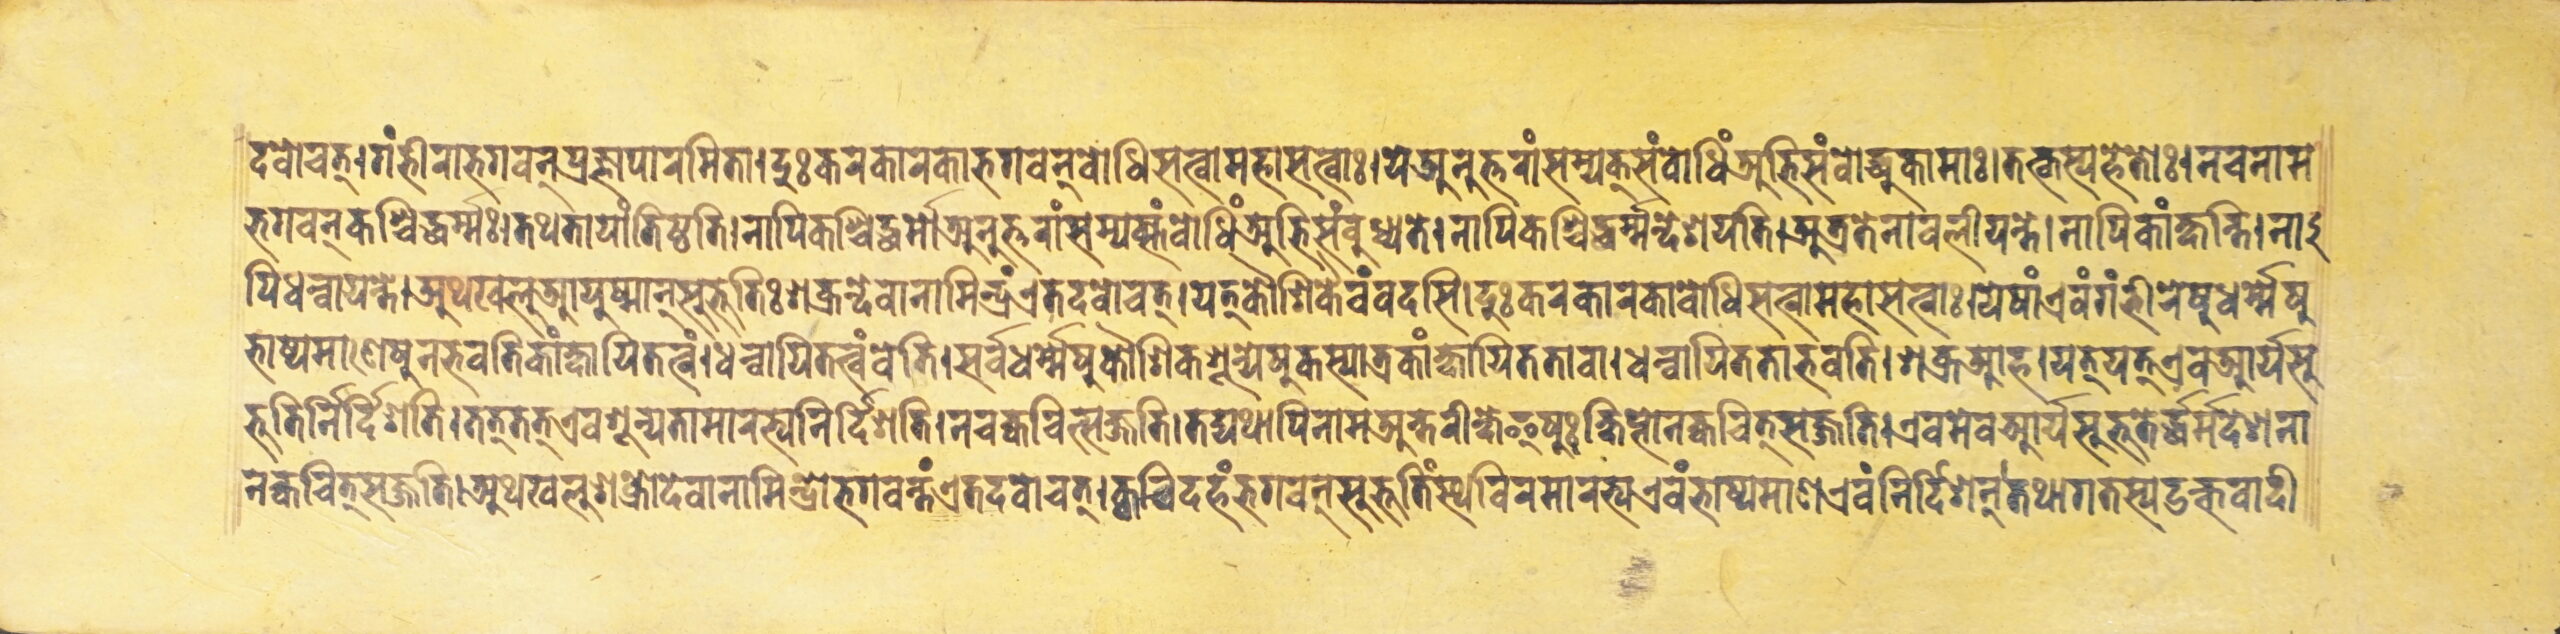 दवोचत्।गंभीराभगवन्प्रज्ञापारमिता।दुःकरकारकाभगवन्बोधिसत्वामहासत्वाः।येअनुत्तरांसम्यक्संबोधिंअभिसंबोद्धुकामाः।तत्कस्यहेतोः।नचनाम
भगवन्कश्चिद्धर्म्मः।तथतायांतिष्ठति।नापिकश्चिद्धर्मोअनुत्तरांसम्यक्संबोधिंअभिसंबुध्यते।नापिकश्चिद्धर्म्मन्देशयति।अत्रतेनावलीयन्ते।नापिकांक्षन्ति।ना
पिधन्वायन्ते।अथखलुआयुष्मान्सुभूतिःशक्रन्देवानामिन्द्रंएतदवोचत्।यत्कौशिकैवंवदसि।दुःकरकारकाबोधिसत्वामहासत्वाः।येषांएवंगंभीरेषुधर्म्मेषु
भाष्यमाणेषुनभवतिकांक्षायितत्वं।धन्वायितत्वंवेति।सर्वधर्म्मेषुकौशिकशून्येषुकस्यात्रकांक्षायिततावा।धन्वायितताभवति।शक्रआह।यत्यत्एवआर्यसु
भूतिर्निर्दिशति।तत्तत्एवशून्यतामारभ्यनिर्दिशति।नचक्वचित्सज्जति।तद्यथापिनामअन्तरीक्षेइषुःक्षिप्तोनक्वचित्सज्जति।एवमेवआर्यसुभूतेर्द्धर्मदेशना
नक्वचित्सज्जति।अथखलुशक्रोदेवानामिन्द्रोभगवन्तंएतदवोचत्।कच्चिदहंभगवन्सुभूतिंस्थविरमारभ्यएवंभाष्यमाणएवंनिर्दिशन्तथागतस्यउक्तवादी